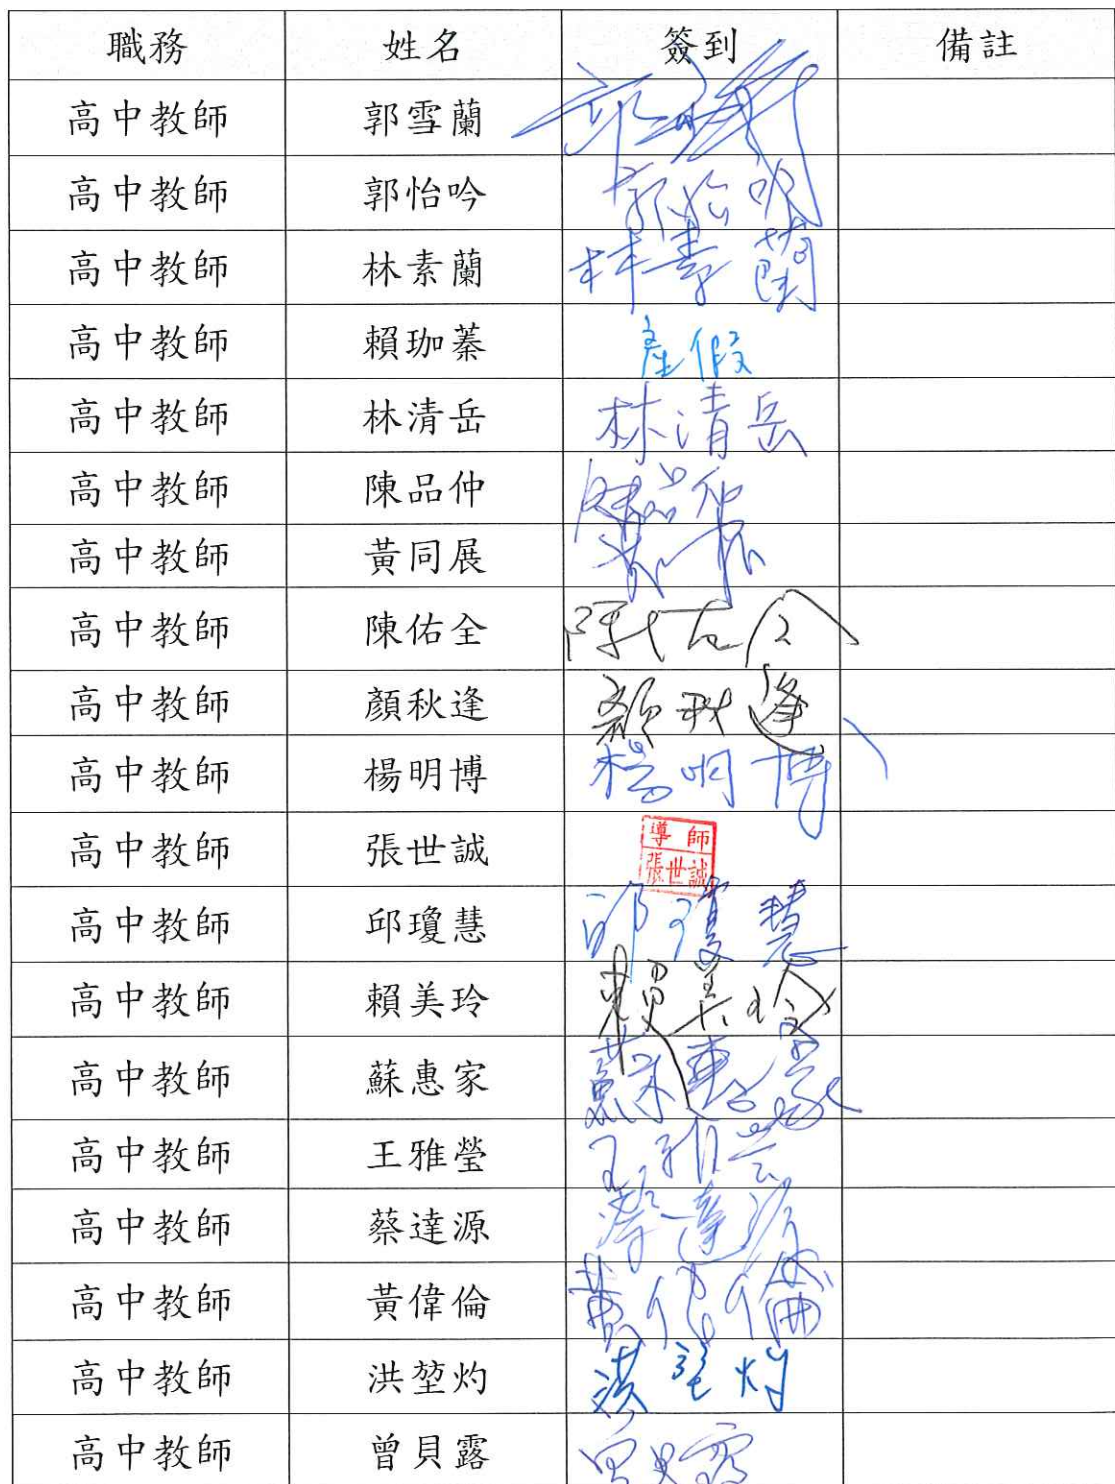 職務 姓名 簽到 備註
高中教師 郭雪蘭
高中教師 郭怡吟 郭怡吟
高中教師 林素蘭 林素蘭
高中教師 賴珈蓁 產假
高中教師 林清岳 林清岳
高中教師 陳品仲 陳品仲
高中教師 黃同展
高中教師 陳佑全 陳佑全
高中教師 顏秋逢 顏秋逢
高中教師 楊明博 楊明博
高中教師 張世誠 導師 張世誠
高中教師 邱瓊慧 邱瓊慧
高中教師 賴美玲 賴美玲
高中教師 蘇惠家 蘇惠家
高中教師 王雅瑩 王雅瑩
高中教師 蔡達源 蔡達源
高中教師 黃偉倫 黃偉倫
高中教師 洪堃灼 洪堃灼
高中教師 曾貝露 曾貝露